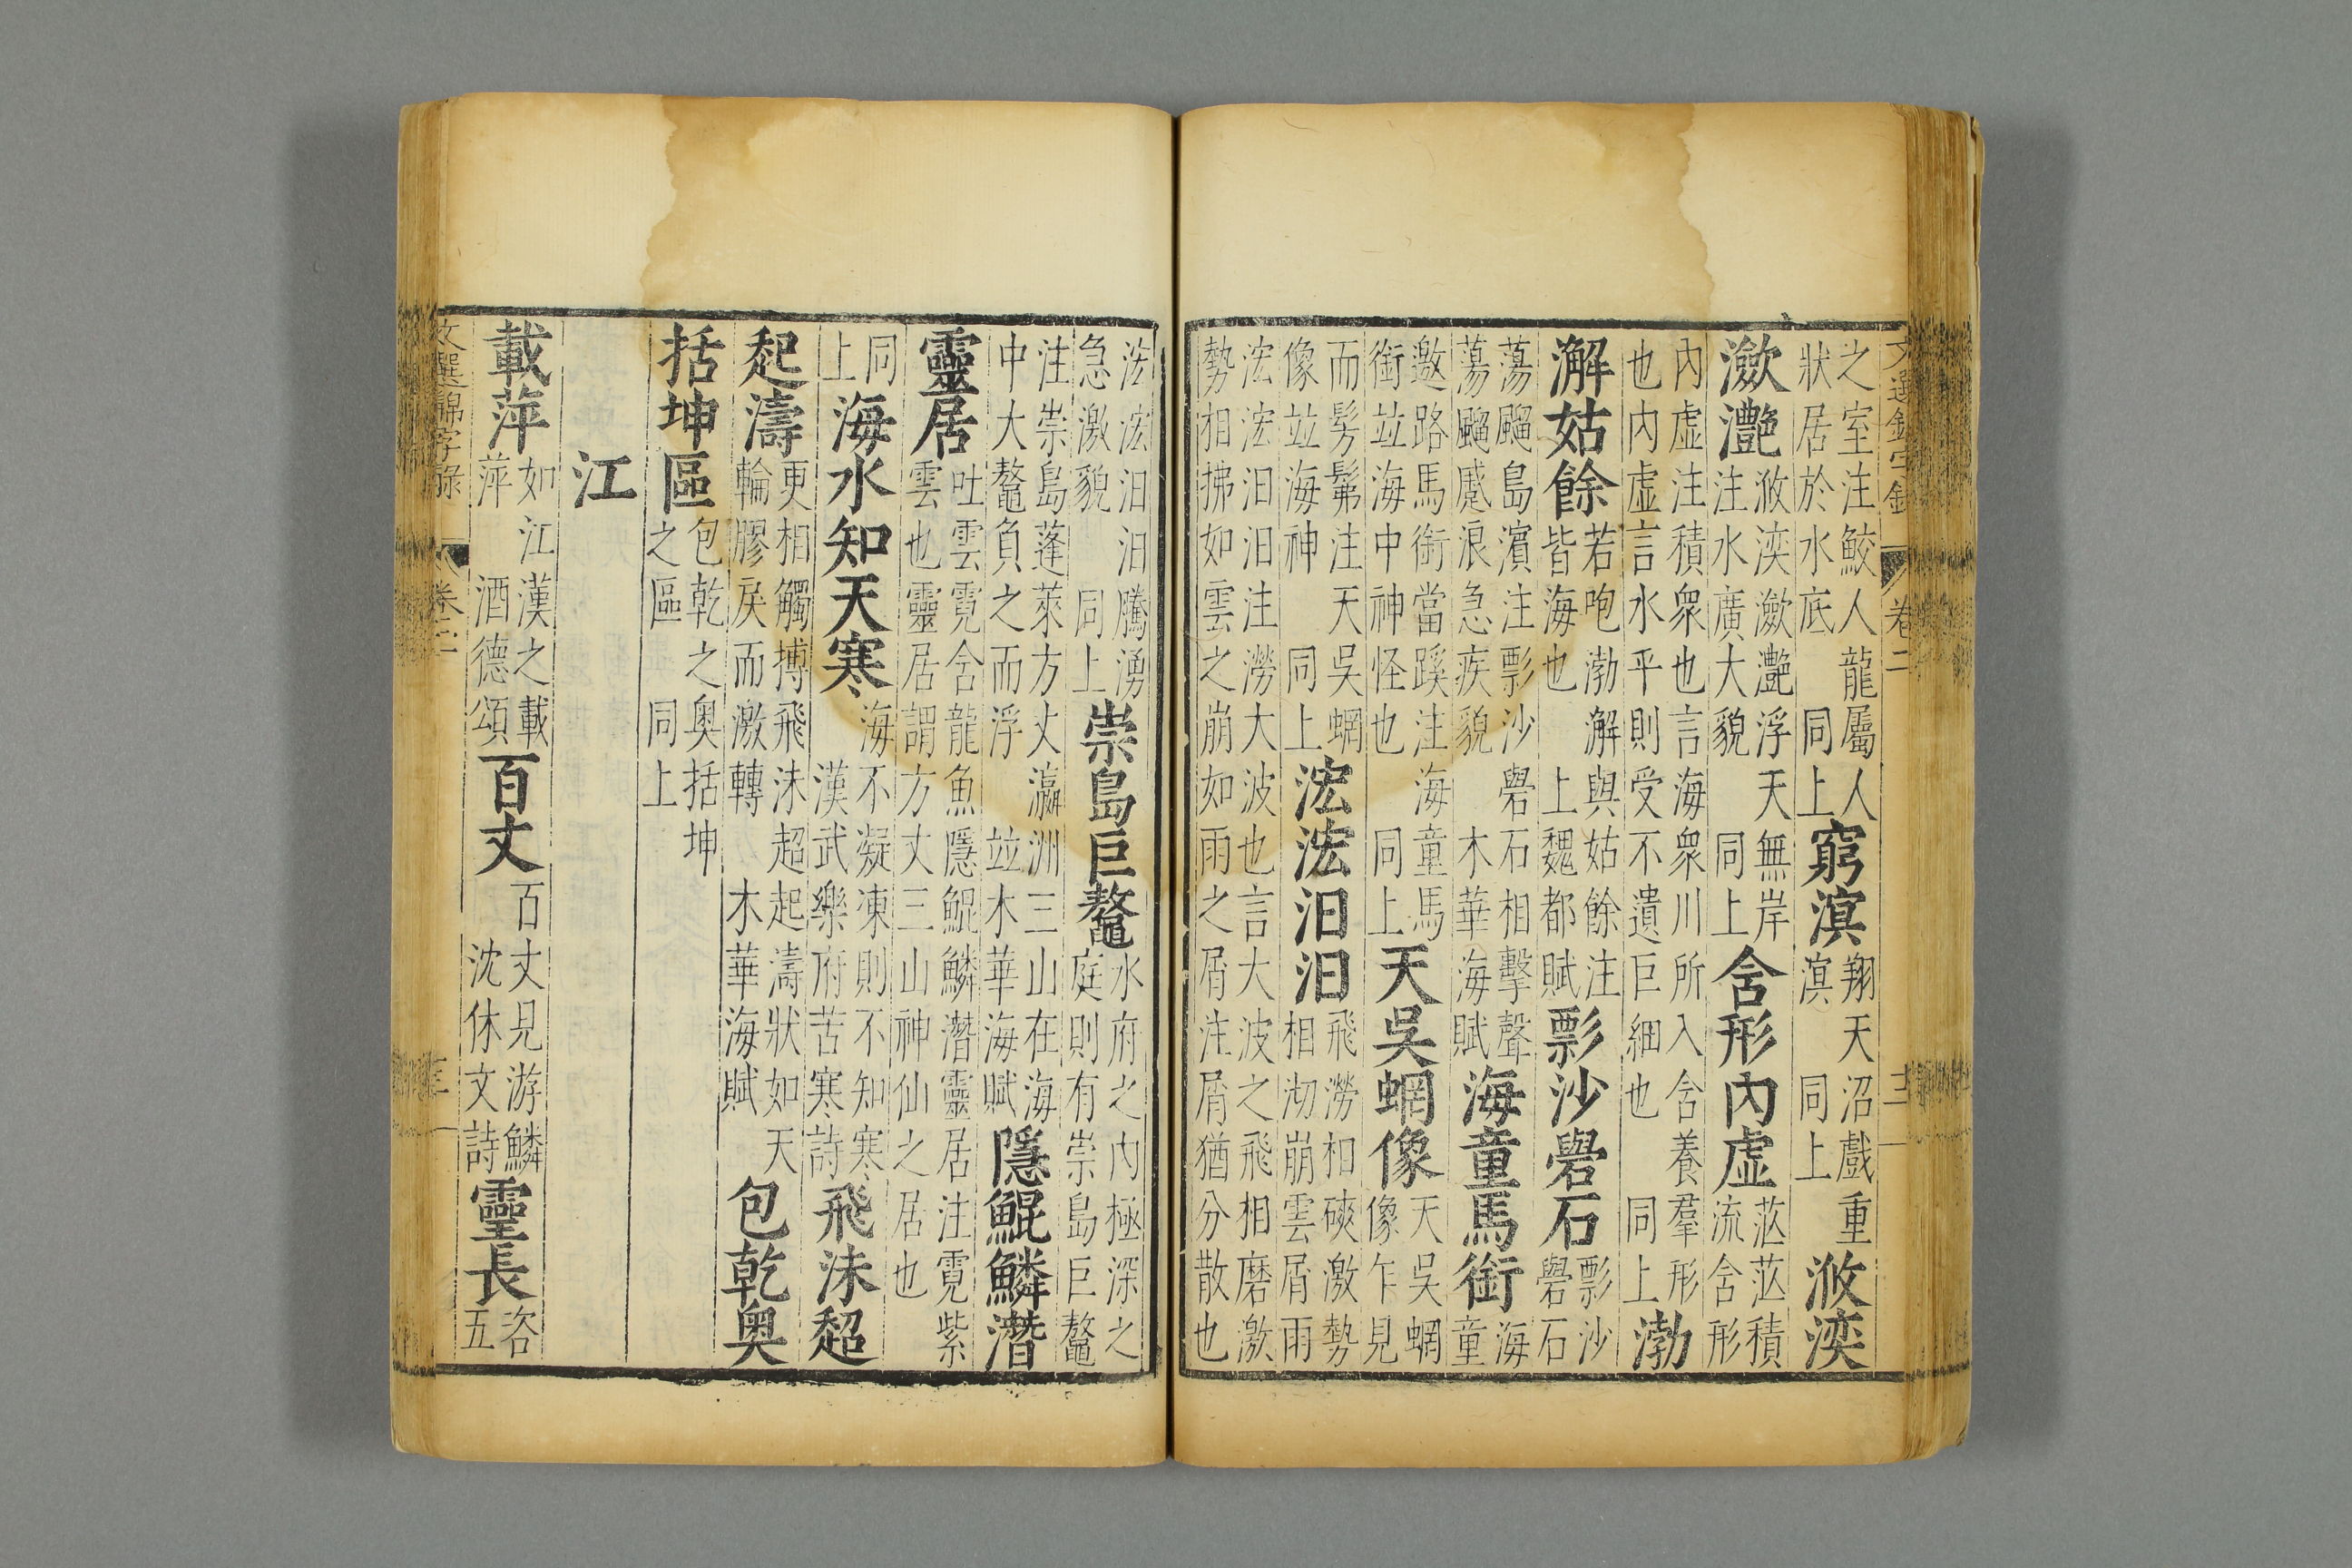 文選錦字錄 卷二 十三
之室注鮫人龍屬人狀居於水底 同上 窮溟 翔天沼戲重溟 同上 浟湙
瀲灔 浟湙瀲灔浮天無岸注水廣大貌 同上 含形內虛 茫茫積流含形
內虛注積衆也言海衆川所入含養羣形也內虛言水平則受不遺巨細也 同上 渤
澥姑餘 若咆渤澥與姑餘注皆海也 上魏都賦 彯沙礐石 彯沙礐石
蕩䬟島濱注彯沙礐石相擊聲蕩䬟蹙浪急疾貌 木華海賦 海童馬銜 海童
邀路馬銜當蹊注海童馬銜竝海中神怪也 同上 天吳蝄像 天吳蝄像乍見
而髣髴注天吳蝄像竝海神 同上 浤浤汩汩 飛澇相磢激勢相沏崩雲屑雨
浤浤汩汩注澇大波也言大波之飛相磨激勢相拂如雲之崩如雨之屑注屑猶分散也
浤浤汩汩騰湧急激貌 同上 崇島巨鼇 水府之內極深之庭則有崇島巨鼇
注崇島蓬萊方丈瀛洲三山在海中大鼇負之而浮 竝木華海賦 隱鯤鱗潛
靈居 吐雲霓含龍魚隱鯤鱗潛靈居注霓紫雲也靈居謂方丈三山神仙之居也
同上 海水知天寒 海不凝凍則不知寒 漢武樂府苦寒詩 飛沫超
起濤 更相觸搏飛沫超起濤狀如天輪膠戾而激轉 木華海賦 包乾奧
括坤區 包乾之奧括坤之區 同上
江
載萍 如江漢之載萍 酒德頌 百丈 百丈見游鱗 沈休文詩 靈長 咨五
文選錦字錄 卷二